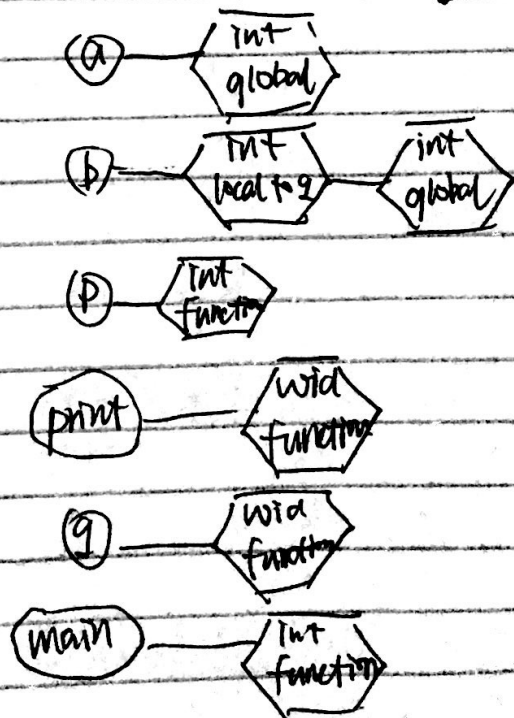 a int
global
b int int
local to g global
p int
function
print void
function
g void
function
main int
function